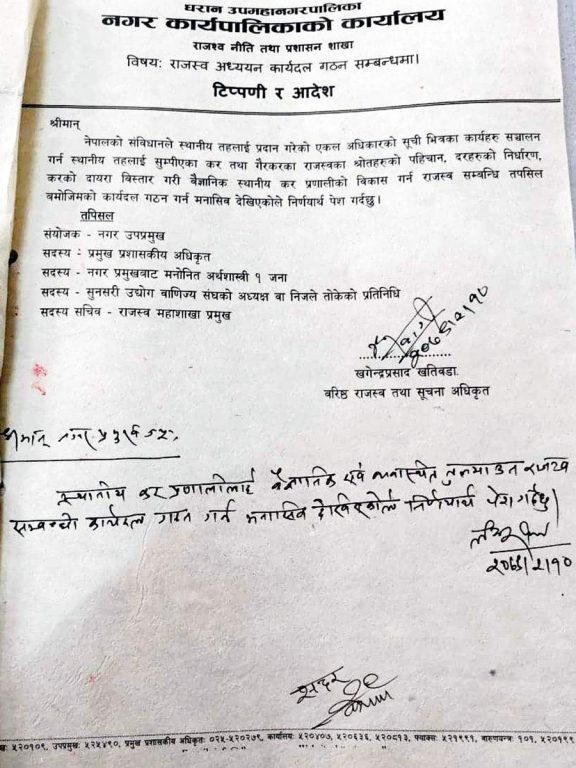 धरान उपमहानगरपालिका
नगर कार्यपालिकाको कार्यालय
राजश्व नीति तथा प्रशासन शाखा
विषय: राजस्व अध्ययन कार्यदल गठन सम्बन्धमा।
टिप्पणी र आदेश
श्रीमान्
नेपालको संविधानले स्थानीय तहलाई प्रदान गरेको एकल अधिकारको सूची भित्रका कार्यहरु सञ्चालन
गर्न स्थानीय तहलाई सुम्पीएका कर तथा गैरकरका राजस्वका श्रोतहरुको पहिचान, दरहरुको निर्धारण,
करको दायरा विस्तार गरी बैज्ञानिक स्थानीय कर प्रणालीको विकास गर्न राजस्व सम्बन्धि तपसिल
बमोजिमको कार्यदल गठन गर्न मनासिब देखिएकोले निर्णयार्थ पेश गर्दछु।
तपिसल
संयोजक - नगर उपप्रमुख
सदस्य - प्रमुख प्रशासकीय अधिकृत
सदस्य - नगर प्रमुखबाट मनोनित अर्थशास्त्री १ जना
सदस्य - सुनसरी उद्योग वाणिज्य संघको अध्यक्ष वा निजले तोकेको प्रतिनिधि
सदस्य सचिव - राजस्व महाशाखा प्रमुख
खगेन्द्रप्रसाद खतिवडा
वरिष्ठ राजस्व तथा सूचना अधिकृत
श्रीमान् नगर प्रमुख ज्यू,
स्थानीय कर प्रणालीलाई बैज्ञानिक एवं व्यवस्थित राजस्व
सम्बन्धी कार्यदल गठन गर्न मनासिब देखिएकोले निर्णयार्थ पेश गर्दछु।
५२०१०९, उपप्रमुख: ५२५४९०, प्रमुख प्रशासकीय अधिकृत: ०२५-५२०२७९, कार्यालय: ५२०४०७, ५२०६३६, ५२०८१३, फ्याक्स: ५२१९११, बारुणयन्त्र: १०१, ५२०१९९